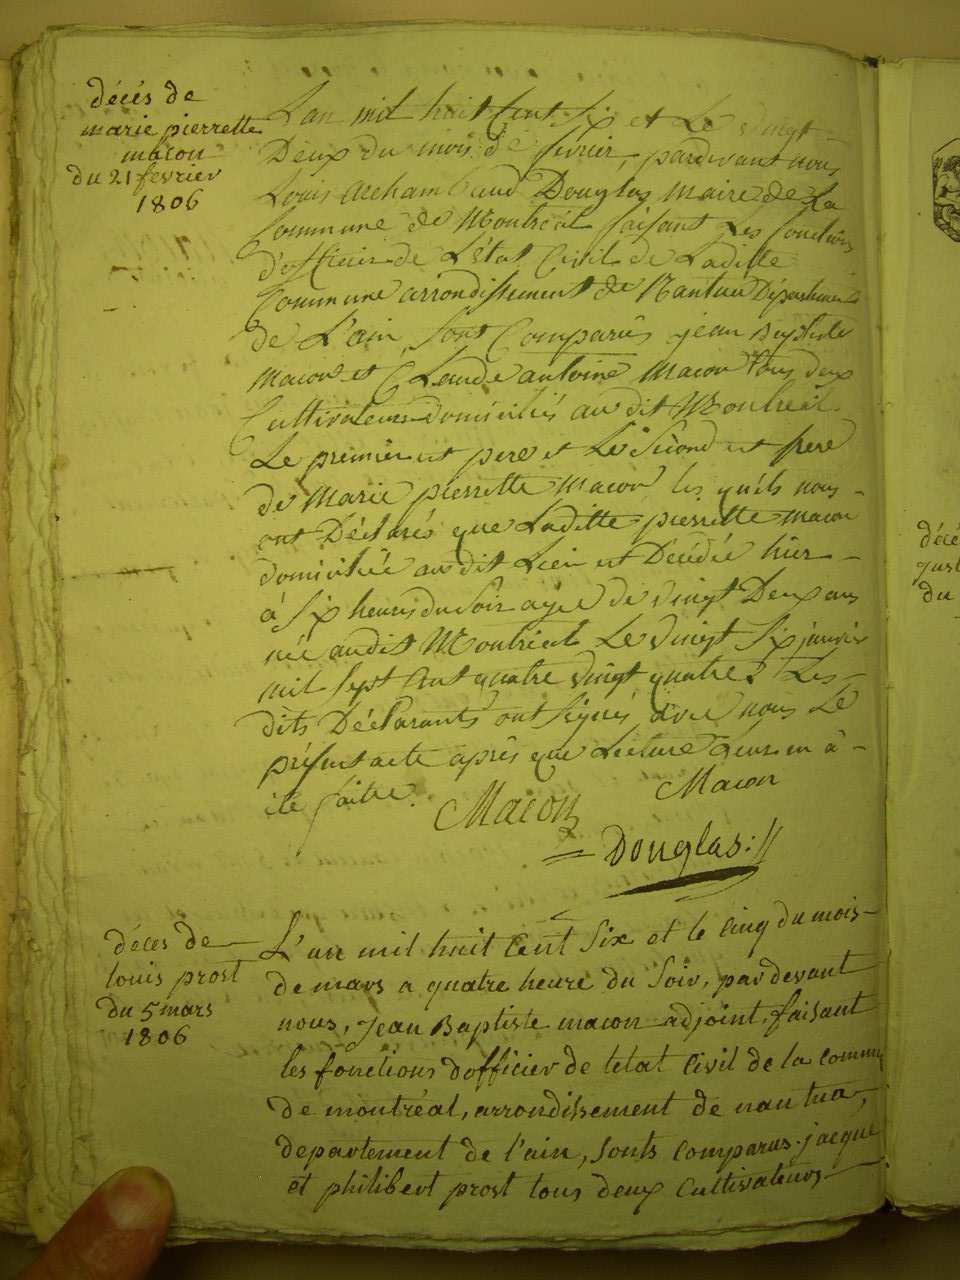 décés de
marie pierrette
macon
du 21 fevrier
1806
L'an mil huit Cent Six et Le vingt
Deux du mois de fevrier, pardevant nous
Louis Archambaud Douglas Maire de La
Commune de Montréal faisant Les fonctions
d'officier de L'état Civil de Laditte
Commune arrondissement de Nantua Département
de L'ain, Sont Comparus jean Baptiste
Macon et Claude antoine Macon tous deux
Cultivateurs domiciliés audit Montréal.
Le premier est pere et Le Second est frere
de Marie pierrette Macon, les quels nous
ont Déclarés que Laditte pierrette Macon
domiciliée audit Lieu est Décédée hier
à Six heures du Soir agée de vingt Deux ans
née audit Montréal Le vingt Six janvier
mil Sept Cent quatre vingt quatre Les
dits Déclarants ont Signés avec nous Le
présent acte après que Lecture Leur en à
été faitte.
Macon
Macon
Douglas
déces de
louis prost
du 5 mars
1806
L'an mil huit Cent Six et le Cinq du mois
de mars a quatre heure du Soir, par devant
nous, Jean Baptiste macon adjoint, faisant
les fonctions dofficier de letat Civil de la commu
de montréal, arrondissement de nantua,
departement de l'ain, Sonts Comparus jacque
et philibert prost tous deux Cultivateurs
décé
du